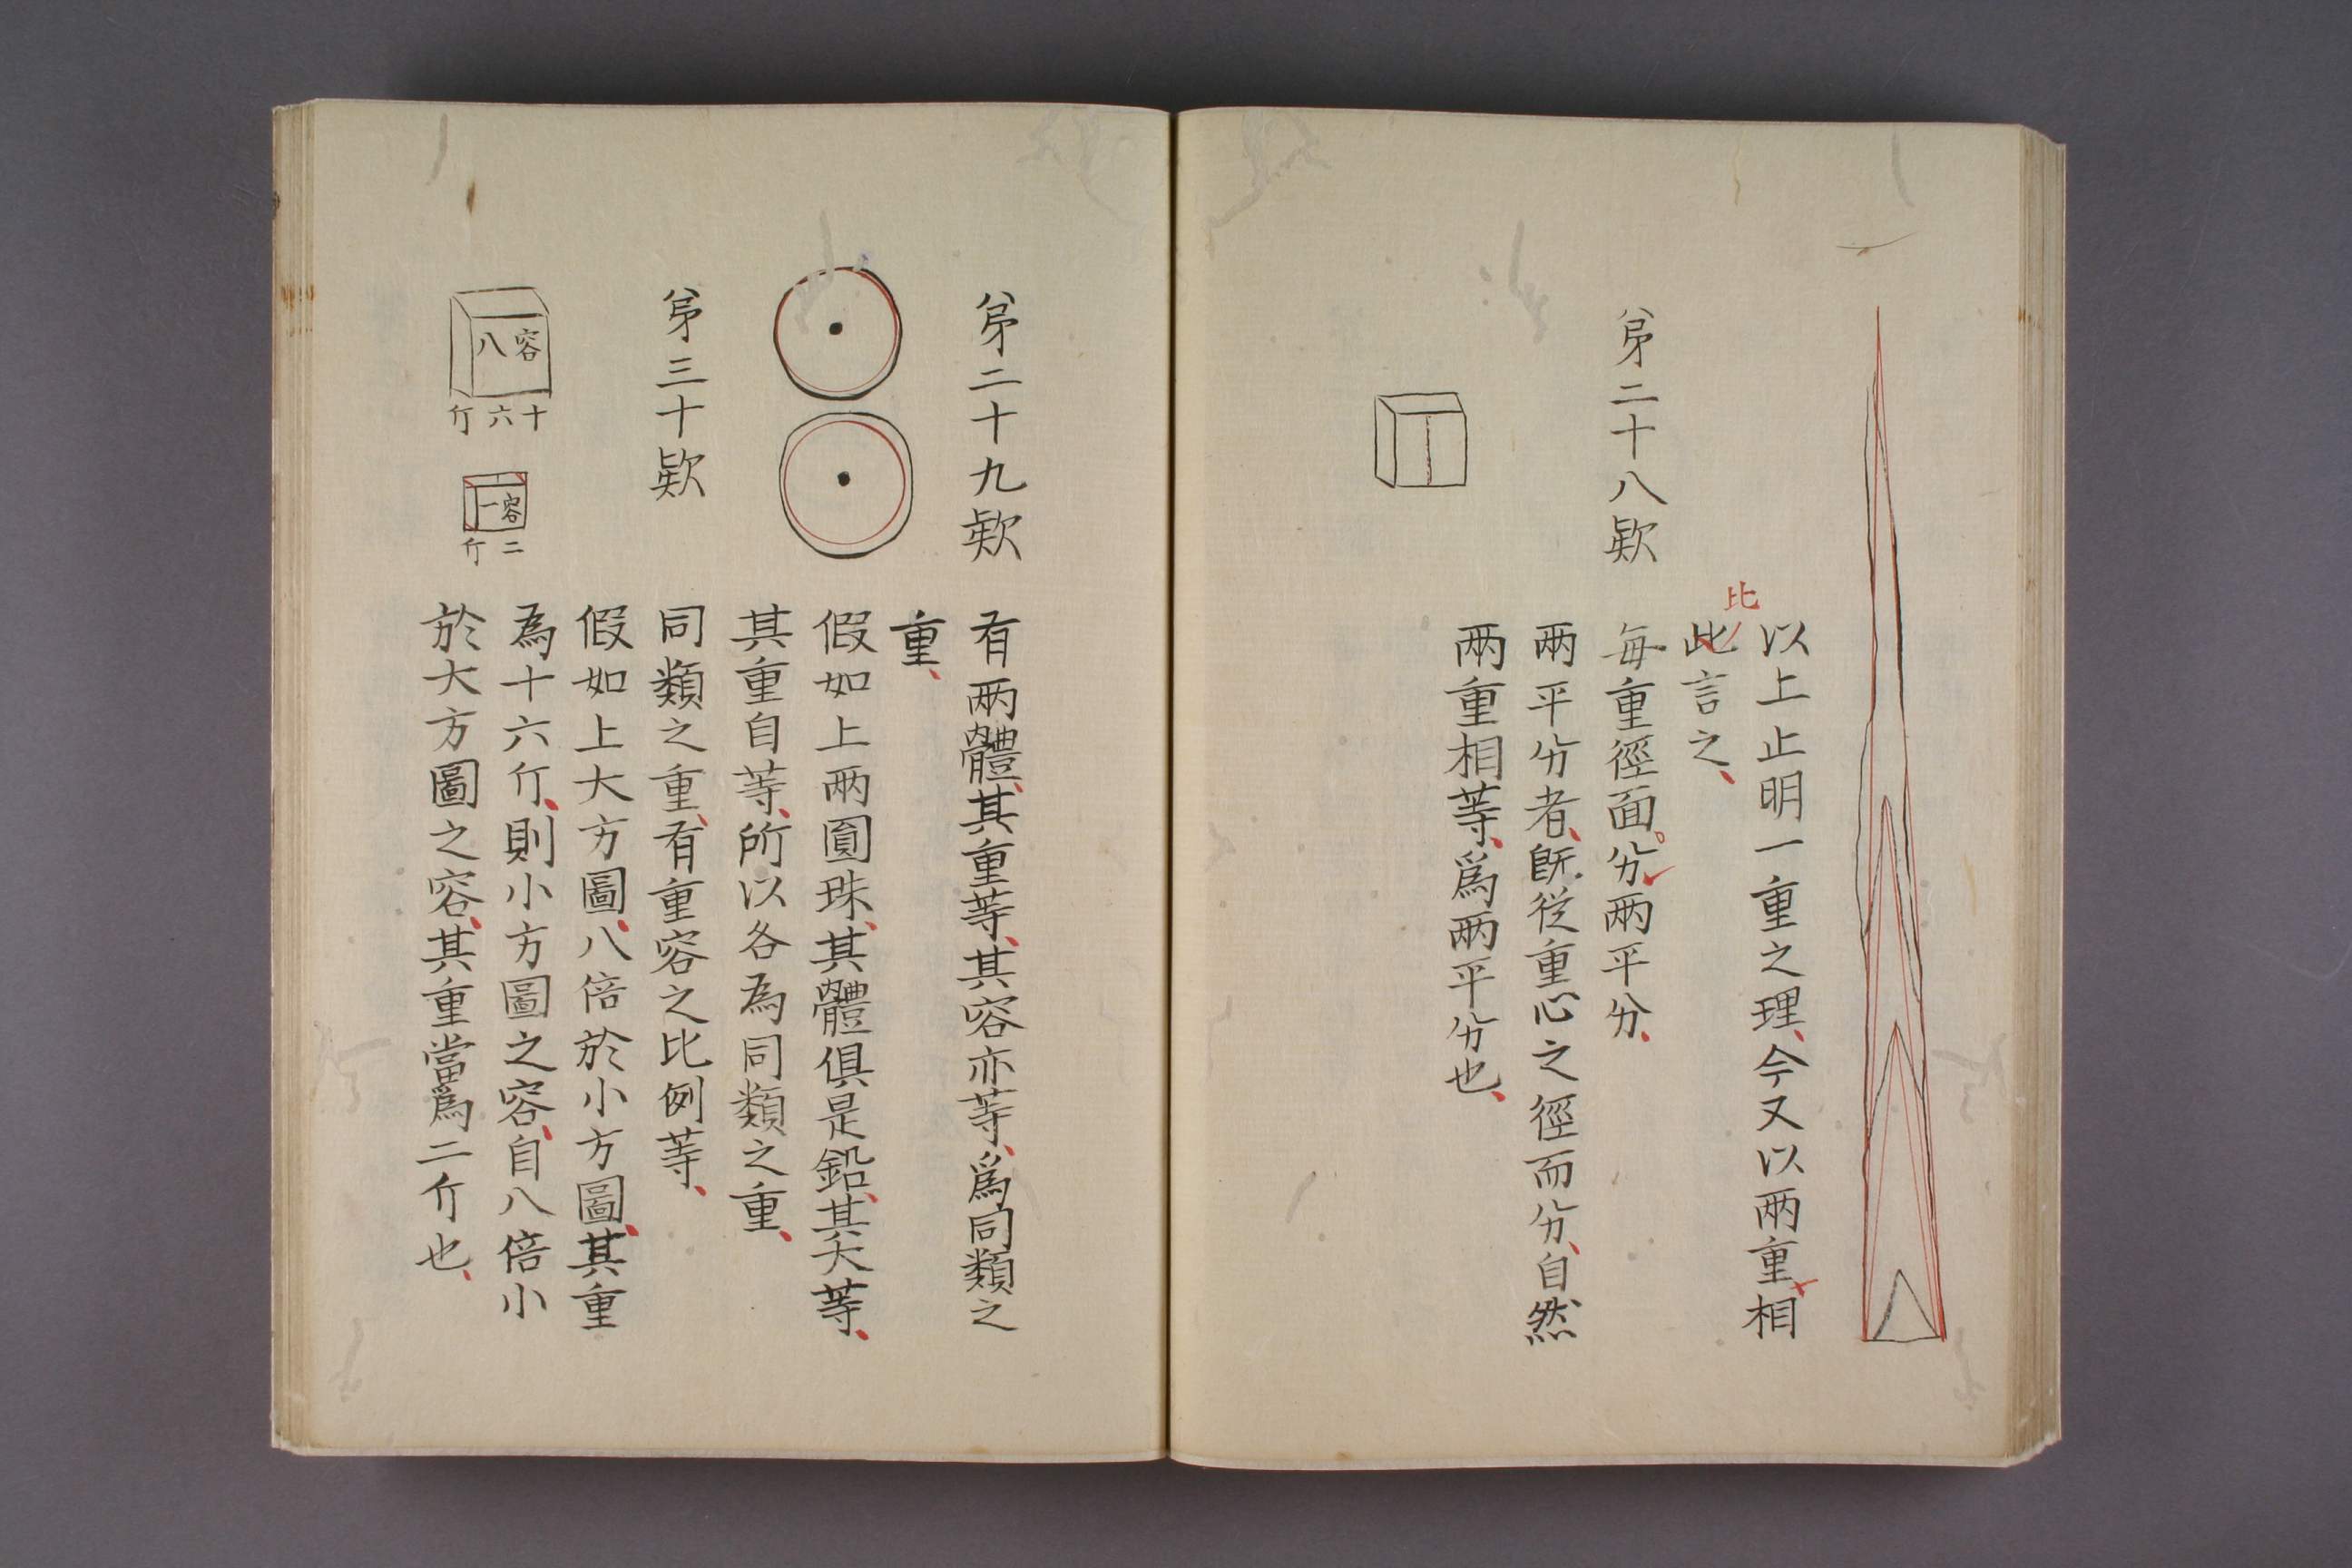 以上止明一重之理、今又以两重相
比
此言之、
苐二十八欵
每重徑面。分两平分、
两平分者、旣從重心之徑而分、自然
两重相等、爲两平分也、
苐二十九欵
有两體、其重等、其容亦等、爲同類之
重、
假如上两圓珠、其體俱是鉛、其大等、
其重自等、所以各為同類之重、
苐三十欵
同類之重、有重容之比例等、
容八
十六斤
容一
二斤
假如上大方圖、八倍於小方圖、其重
為十六斤、則小方圖之容、自八倍小
於大方圖之容、其重當爲二斤也、